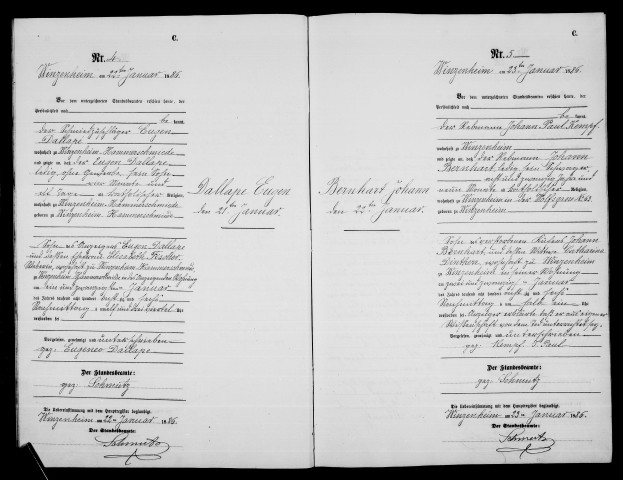 C.
Nr. 4
Winzenheim am 22ten Januar 1886.
Vor dem unterzeichneten Standesbeamten erschien heute, der
Persönlichkeit nach
be kannt,
der Eugen
Dallape
wohnhaft zu Winzenheim Hammerschmiede
und zeigte an, daß der Eugen Dallape
ledig, ohne Gewerbe, sein Sohn
vier Monate und
alt, katholischer Religion,
wohnhaft zu Winzenheim Hammerschmiede
geboren zu Winzenheim Hammerschmiede
Sohn des Anzeigend Eugen Dallape
und dessen Ehefrau Elisabeth
wohnhaft zu Winzenheim Hammerschmiede
zu Winzenheim
am ein und zwanzigsten Januar
des Jahres tausend acht hundert achtzig und sechs
Vormittags um
verstorben sei
Vorgelesen, genehmigt und unterschrieben
gez: Eugenio Dallape
Der Standesbeamte:
gez: Schmutz
Die Uebereinstimmung mit dem Hauptregister beglaubigt.
Winzenheim am 22ten Januar 1886.
Der Standesbeamte:
Schmutz
Dallape Eugen
den 21ten Januar.
Bernhart Johann
den 22ten Januar.
C.
Nr. 5
Winzenheim am 23ten Januar 1886.
Vor dem unterzeichneten Standesbeamten erschien heute, der
Persönlichkeit nach
be kannt,
der Rebmann Johann Paul Kempf
wohnhaft zu Winzenheim
und zeigte an, daß der Rebmann Johann
Bernhart, ledig
acht und zwanzig Jahre und
neun Monate alt, katholischer Religion,
wohnhaft zu Winzenheim in der
geboren zu Winzenheim
Sohn verstorbenen Johann
Bernhart, und dessen Wittwe Catharina
wohnhaft zu Winzenheim
zu Winzenheim in seiner Wohnung
am zwei und zwanzigsten Januar
des Jahres tausend acht hundert achtzig und sechs
Nachmittags um halb ein Uhr
verstorben sei. Anzeiger erklärte, daß er aus eigener
Wissenschaft von dem Tod unterrichtet sey.
Vorgelesen, genehmigt und unterschrieben
gez: Kempf J. Paul
Der Standesbeamte:
gez: Schmutz
Die Uebereinstimmung mit dem Hauptregister beglaubigt.
Winzenheim am 23ten Januar 1886.
Der Standesbeamte:
Schmutz